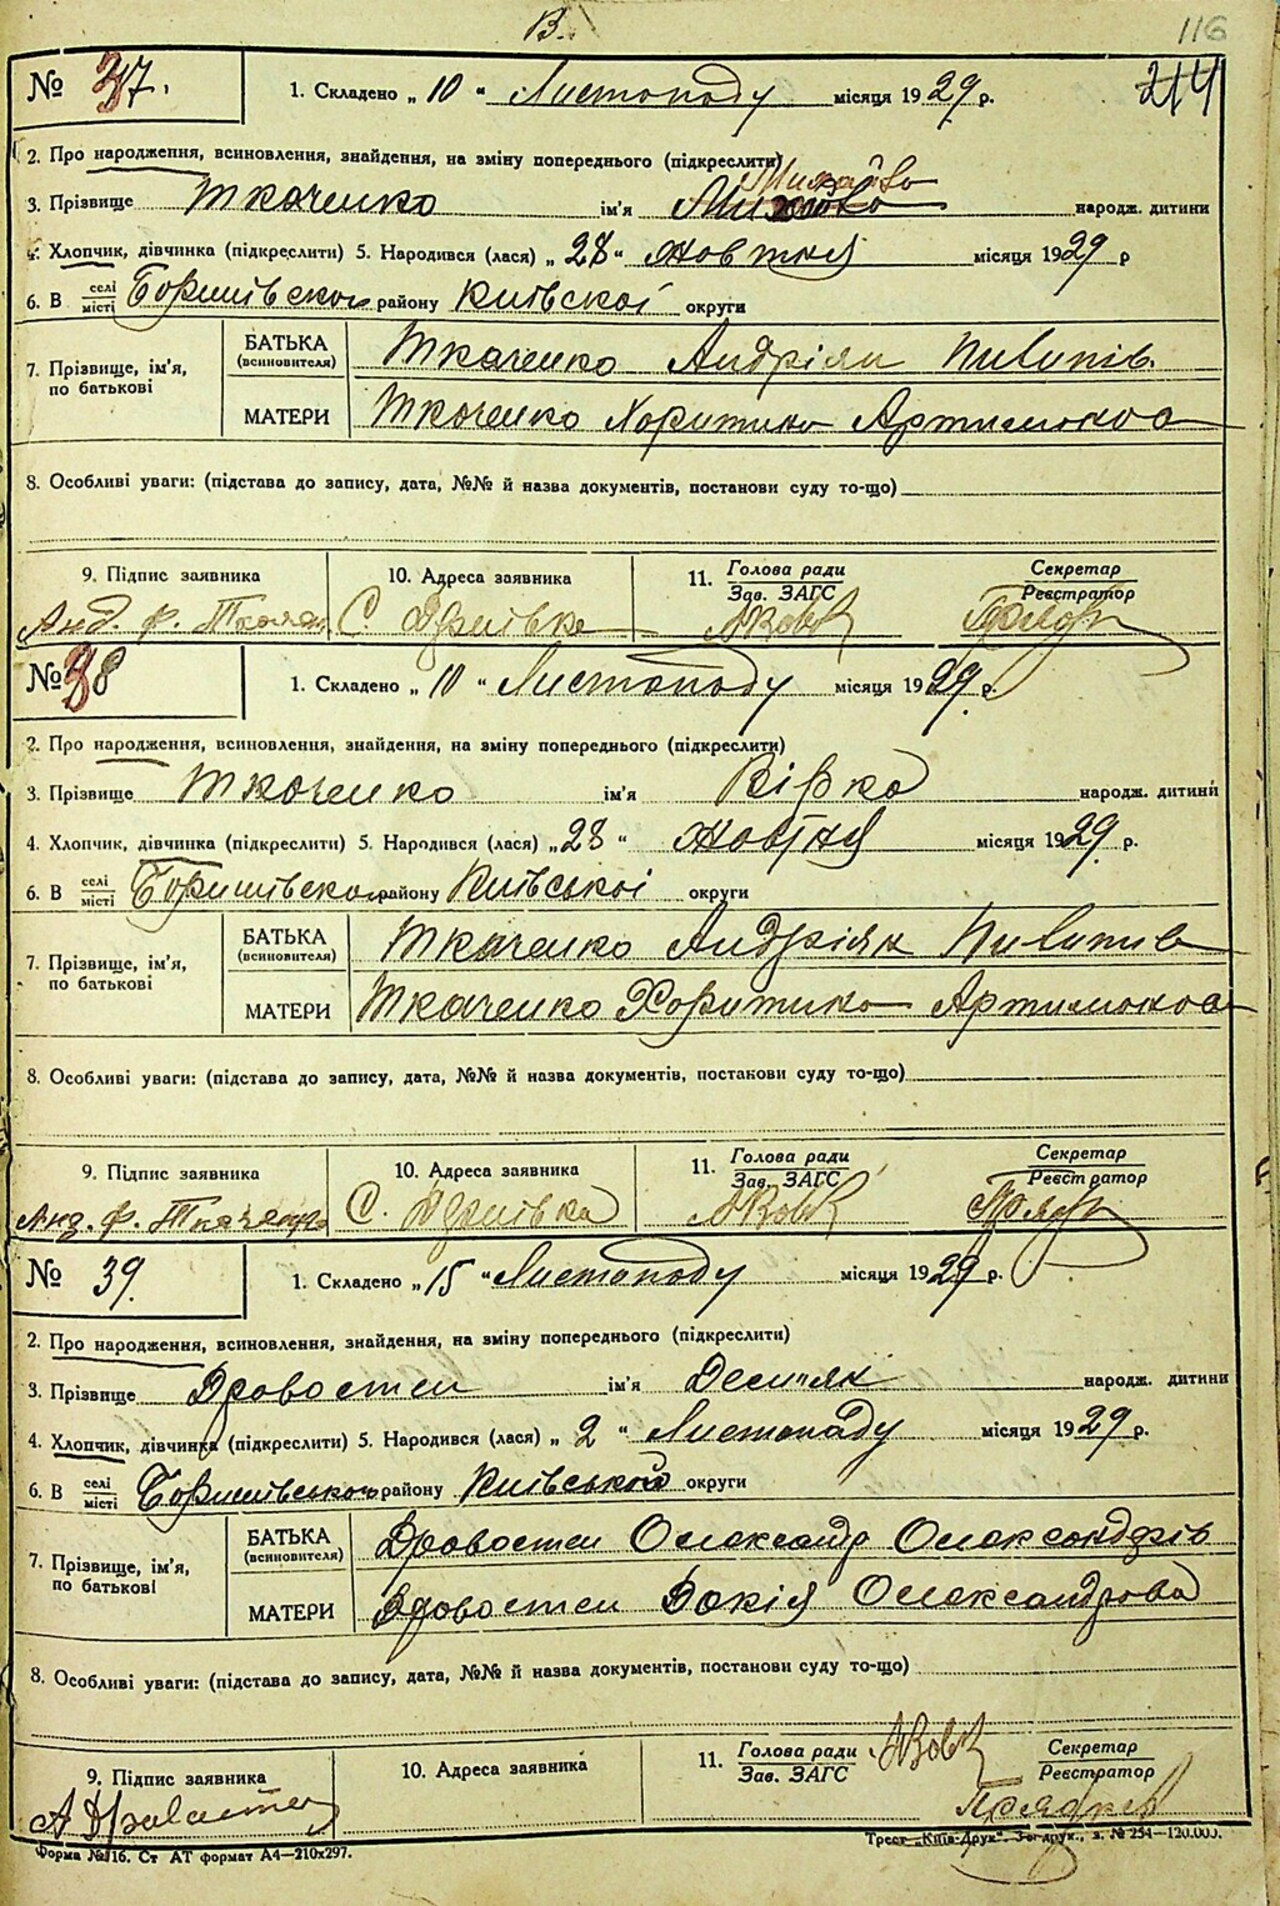 В.
116
№ 37.
1. Складено „ 10 “ Листопаду місяця 1929 р.
214
2. Про народження, всиновлення, знайдення, на зміну попереднього (підкреслити)
3. Прізвище Ткаченко ім'я Михайло народж. дитини
4. Хлопчик, дівчинка (підкреслити) 5. Народився (лася) „ 28 “ Жовтня місяця 1929 р
6. В селі місті Боришівском району Киівскоі округи
7. Прізвище, ім'я, по батькові
БАТЬКА (всиновителя) Ткаченко Андріян
МАТЕРИ Ткаченко Харитина Артимонова
8. Особливі уваги: (підстава до запису, дата, №№ й назва документів, постанови суду то-що)
9. Підпис заявника
10. Адреса заявника
11. Голова ради Зав. ЗАГС
Секретар Реєстратор
Анд. Ф. Ткачен
С.
№ 38
1. Складено „ 10 “ Листопаду місяця 1929 р.
2. Про народження, всиновлення, знайдення, на зміну попереднього (підкреслити)
3. Прізвище Ткаченко ім'я Вірка народж. дитини
4. Хлопчик, дівчинка (підкреслити) 5. Народився (лася) „ 28 “ Жовтня місяця 1929 р.
6. В селі місті Боришівском району Киівськоі округи
7. Прізвище, ім'я, по батькові
БАТЬКА (всиновителя) Ткаченко Андріян
МАТЕРИ Ткаченко Харитина Артимонова
8. Особливі уваги: (підстава до запису, дата, №№ й назва документів, постанови суду то-що)
9. Підпис заявника
10. Адреса заявника
11. Голова ради Зав. ЗАГС
Секретар Реєстратор
Анд. Ф. Ткаченко
С.
№ 39.
1. Складено „ 15 “ Листопаду місяця 1929 р.
2. Про народження, всиновлення, знайдення, на зміну попереднього (підкреслити)
3. Прізвище Дровостеп ім'я Десип'як народж. дитини
4. Хлопчик, дівчинка (підкреслити) 5. Народився (лася) „ 2 “ Листопаду місяця 1929 р.
6. В селі місті Боришівськом району Киівської округи
7. Прізвище, ім'я, по батькові
БАТЬКА (всиновителя) Олександр Олександрів
МАТЕРИ Вокія Олександрова
8. Особливі уваги: (підстава до запису, дата, №№ й назва документів, постанови суду то-що)
9. Підпис заявника
10. Адреса заявника
11. Голова ради Зав. ЗАГС
Секретар Реєстратор
Форма № 16. Ст АТ формат А4—210х297.
Трест „Київ-Друк“. з. № 254—120.000.